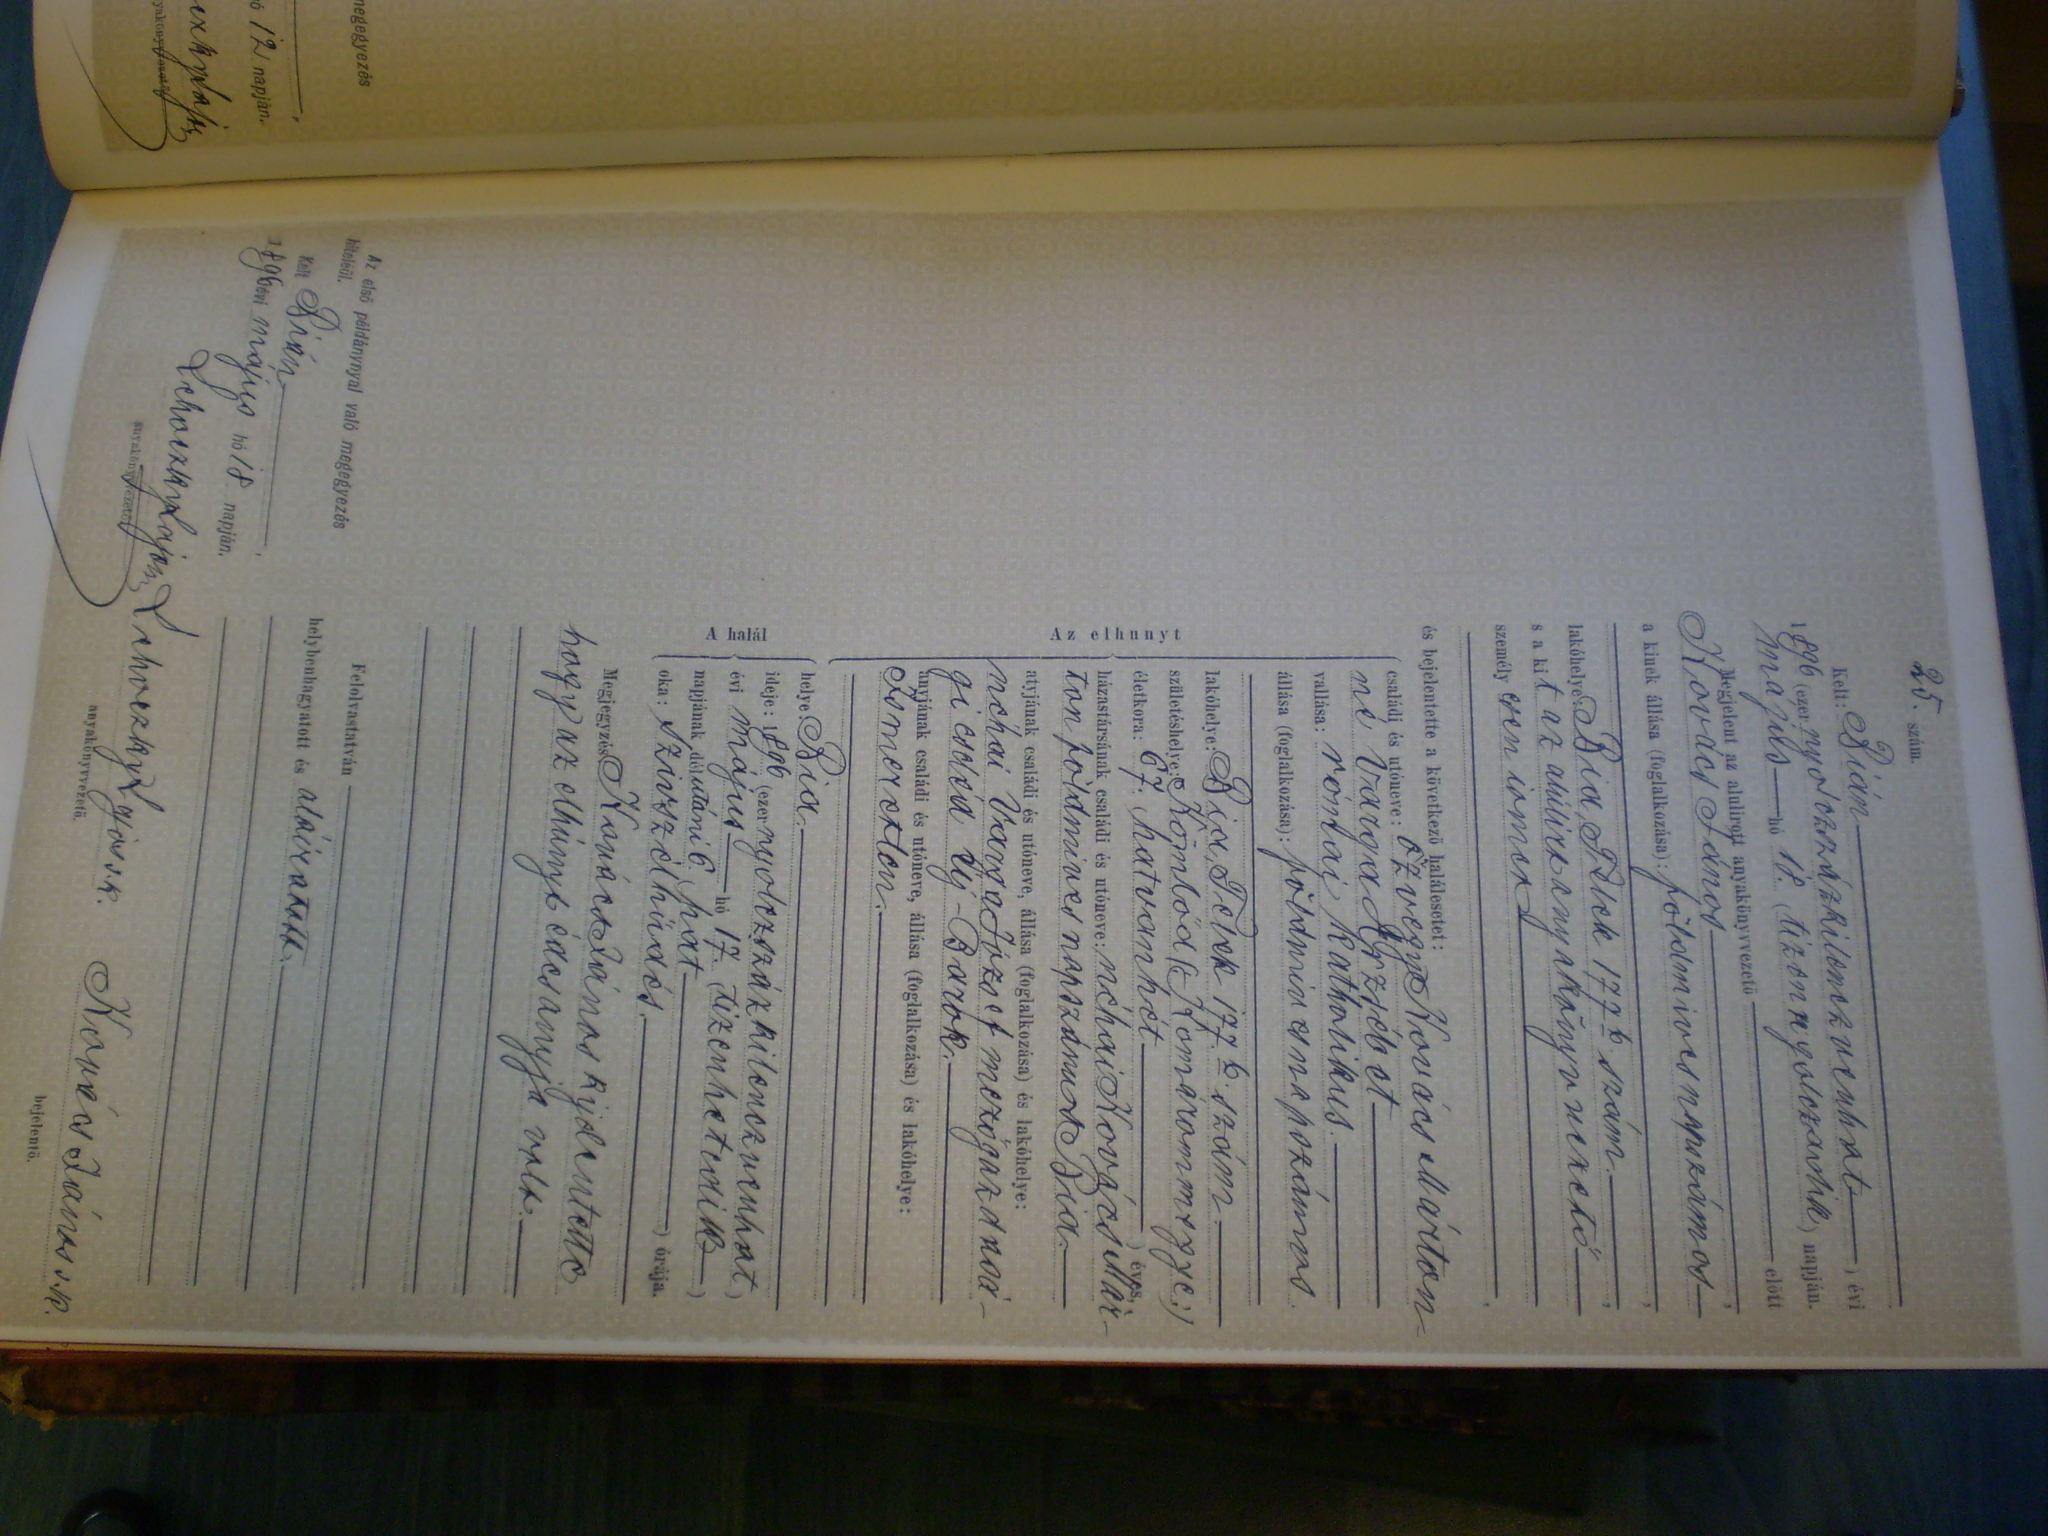 megegyezés
hó 12 napján.
25. szám.
Kelt: Bián
1896 (ezer nyolczszázkilenczvenhat) évi
május hó 18. (tizennyolczadik) napján.
Megjelent az alulirott anyakönyvvezető előtt
Kovács János,
a kinek állása (foglalkozása): földmives napszámos,
lakóhelye: Bia, Telek 177 b. szám,
s a kit az alulirt anyakönyvvezető
személyesen ismer,
és bejelentette a következő halálesetet:
Az elhunyt
családi és utóneve: özvegy Kovács Márton-
né Varga Erzsébet
vallása: római katholikus.
állása (foglalkozása): földmives napszámos.
lakóhelye: Bia, Telek 177 b. szám.
születéshelye: Kömlőd (Komárommegye;)
életkora: 67. hatvanhét) éves,
házastársának családi és utóneve: néhai Kovács Már-
ton földmives napszámos Bia.
atyjának családi és utóneve, állása (foglalkozása) és lakóhelye:
néhai Varga József mezőgazdasá-
gi cseléd Új-Barok.
anyjának családi és utóneve, állása (foglalkozása) és lakóhelye:
Ismeretlen.
A halál
helye: Bia.
ideje: 1896 (ezer nyolczszázkilenczvenhat)
évi május hó 17. (tizenhetedik)
napjának délutáni 6. (hat) órája.
oka: szívszélhűdés.
Megjegyzés: Kovács János kijelentette
hogy az elhúnyt édesanyja volt.
Felolvastatván
helybenhagyatott és aláiratott.
Az első példánynyal való megegyezés
hiteléül.
Kelt Bián,
1896 évi május hó 18 napján.
Lehoczky Lajos
anyakönyvvezető
Lehoczky Lajos s.k.
anyakönyvvezető.
Kovács János s.k.
bejelentő.